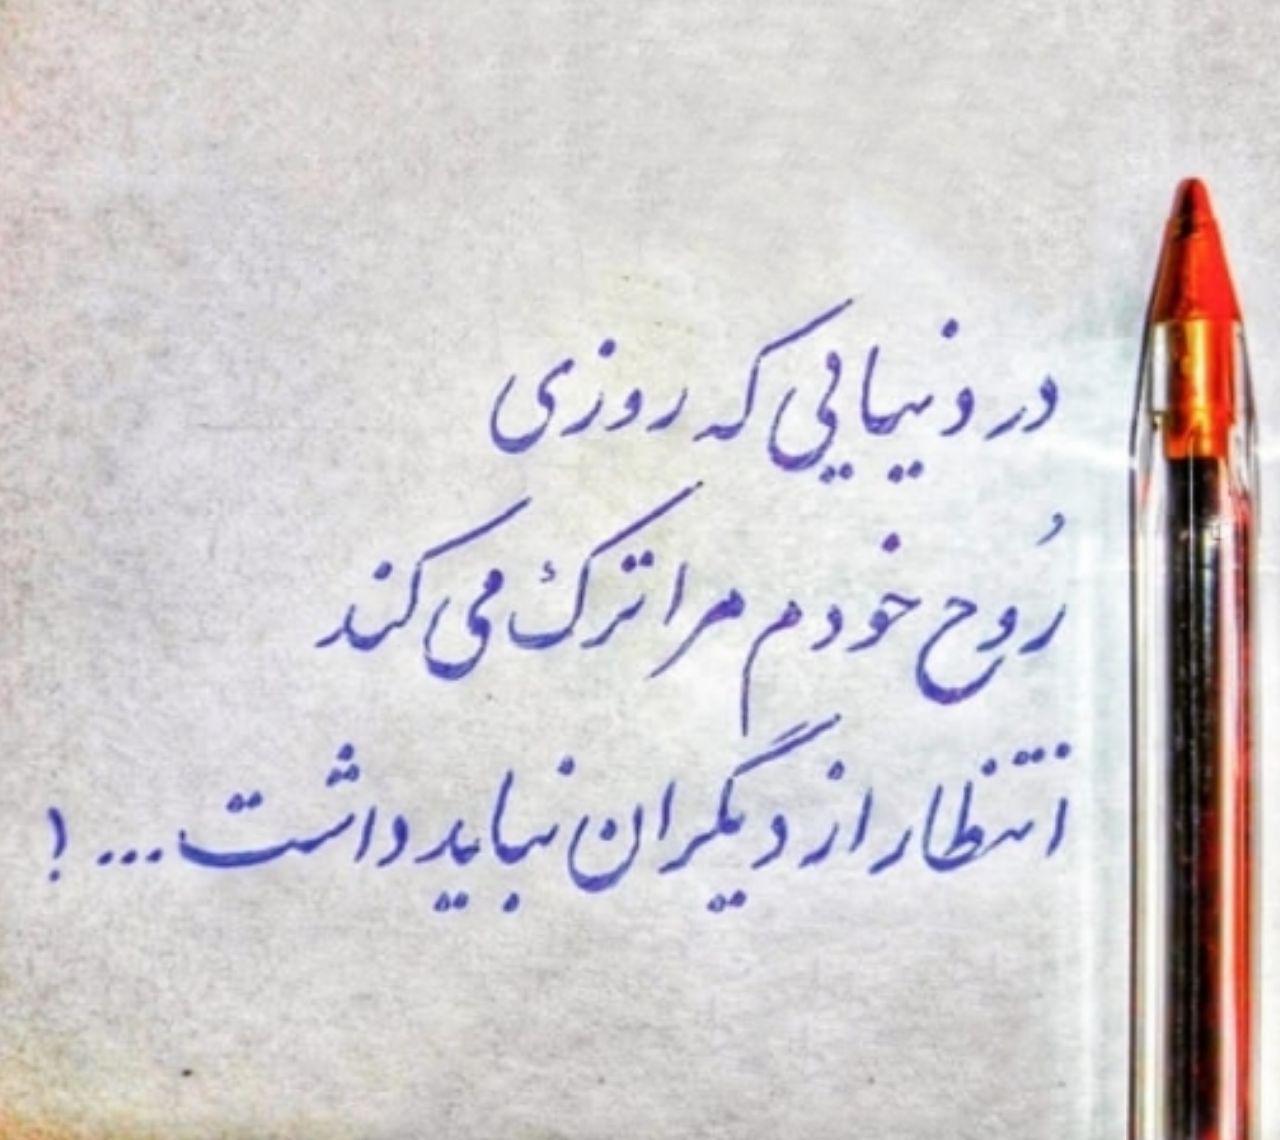 در دنیایی که روزی
رُوح خودم مرا ترک می کند
انتظار از دیگران نباید داشت...!